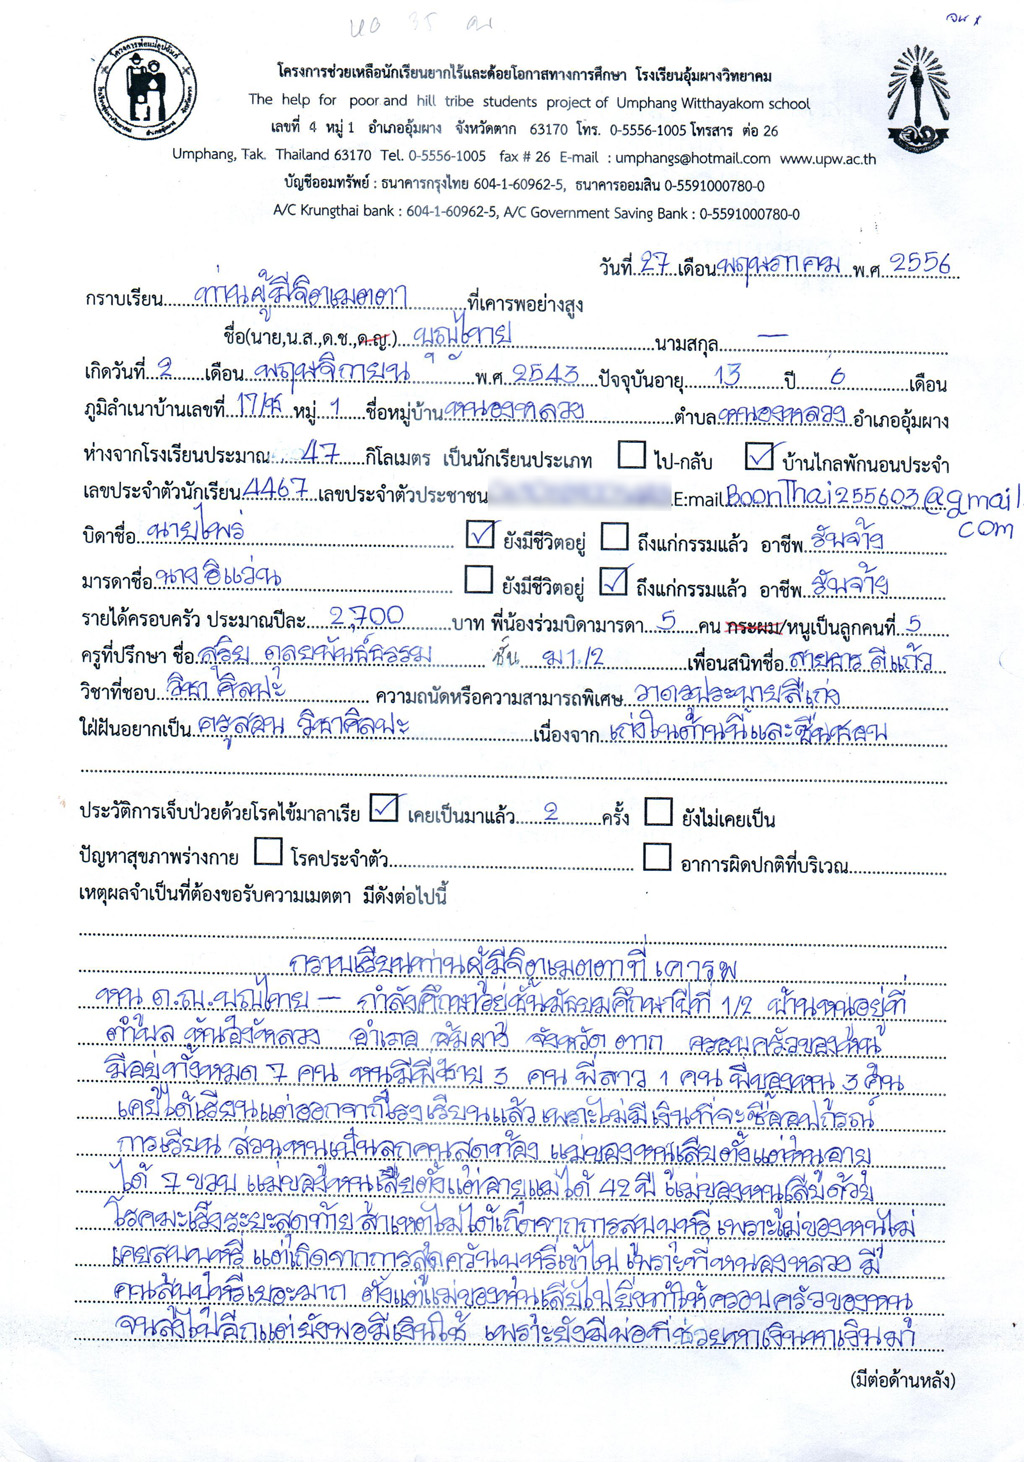 นอ 35 ฅน
จน 1
โครงการพ่อแม่อุปถัมภ์
โครงการช่วยเหลือนักเรียนยากไร้และด้อยโอกาสทางการศึกษา โรงเรียนอุ้มผางวิทยาคม
The help for poor and hill tribe students project of Umphang Witthayakom school
เลขที่ 4 หมู่ 1 อำเภออุ้มผาง จังหวัดตาก 63170 โทร. 0-5556-1005 โทรสาร ต่อ 26
Umphang, Tak. Thailand 63170 Tel. 0-5556-1005 fax # 26 E-mail : umphangs@hotmail.com www.upw.ac.th
บัญชีออมทรัพย์ : ธนาคารกรุงไทย 604-1-60962-5, ธนาคารออมสิน 0-5591000780-0
A/C Krungthai bank : 604-1-60962-5, A/C Government Saving Bank : 0-5591000780-0
วันที่ 27 เดือน พฤษภาคม พ.ศ 2556
กราบเรียน ท่านผู้มีจิตเมตตา ที่เคารพอย่างสูง
ชื่อ(นาย,น.ส.,ด.ช.,ด.ญ.) บุญไทย นามสกุล —
เกิดวันที่ 2 เดือน พฤษจิกายน พ.ศ 2543 ปัจจุบันอายุ 13 ปี 6 เดือน
ภูมิลำเนาบ้านเลขที่ 17/ช หมู่ 1 ชื่อหมู่บ้าน หนองหลวง ตำบล หนองหลวง อำเภออุ้มผาง
ห่างจากโรงเรียนประมาณ 47 กิโลเมตร เป็นนักเรียนประเภท ไป-กลับ บ้านไกลพักนอนประจำ
เลขประจำตัวนักเรียน 4467 เลขประจำตัวประชาชน E:mail BoonThai255603@gmail.com
บิดาชื่อ นายไพร่ ยังมีชีวิตอยู่ ถึงแก่กรรมแล้ว อาชีพ รับจ้าง
มารดาชื่อ นางอิแว่น ยังมีชีวิตอยู่ ถึงแก่กรรมแล้ว อาชีพ รับจ้าง
รายได้ครอบครัว ประมาณปีละ 2,700 บาท พี่น้องร่วมบิดามารดา 5 คน กระผม/หนูเป็นลูกคนที่ 5
ครูที่ปรึกษา ชื่อ สุริย ดุลยพันธ์ธรรม ชั้น ม1/2 เพื่อนสนิทชื่อ สายธาร ดีแก้ว
วิชาที่ชอบ วิชาศิลปะ ความถนัดหรือความสามารถพิเศษ วาดรูประบายสีเก่ง
ใฝ่ฝันอยากเป็น ครูสอน วิชาศิลปะ เนื่องจาก เก่งในด้านนี้และชื่นชอบ
ประวัติการเจ็บป่วยด้วยโรคไข้มาลาเรีย เคยเป็นมาแล้ว 2 ครั้ง ยังไม่เคยเป็น
ปัญหาสุขภาพร่างกาย โรคประจำตัว อาการผิดปกติที่บริเวณ
เหตุผลจำเป็นที่ต้องขอรับความเมตตา มีดังต่อไปนี้
กราบเรียนท่านผู้มีจิตเมตตาที่เคารพ
หนู ด.ญ.บุญไทย — กำลังศึกษาอยู่ชั้นมัธยมศึกษาปีที่ 1/2 บ้านหนูอยู่ที่
ตำบล หนองหลวง อำเภอ อุ้มผาง จังหวัด ตาก ครอบครัวของหนู
มีอยู่ทั้งหมด 7 คน หนูมีพี่ชาย 3 คน พี่สาว 1 คน พี่ของหนู 3 คน
เคยได้เรียนแต่ออกจากโรงเรียนแล้ว เพราะไม่มีเงินที่จะซื้ออุปกรณ์
การเรียน ส่วนหนูเป็นลูกคนสุดท้อง แม่ของหนูเสียตั้งแต่หนูอายุ
ได้ 7 ขวบ แม่ของหนูเสียตั้งแต่อายุแม่ได้ 42 ปี แม่ของหนูเสียด้วย
โรคมะเร็งระยะสุดท้าย สาเหตุไม่ได้เกิดจากการสูบบุหรี่ เพราะแม่ของหนูไม่
เคยสูบบุหรี่ แต่เกิดจากการสูดควันบุหรี่เข้าไป เพราะที่หนองหลวง มี
คนสูบบุหรี่เยอะมาก ตั้งแต่แม่ของหนูเสียไปยิ่งทำให้ครอบครัวของหนู
จนลงไปอีกแต่ยังพอมีเงินใช้ เพราะยังมีพ่อที่ช่วยหาเงินหาเงินมา
(มีต่อด้านหลัง)